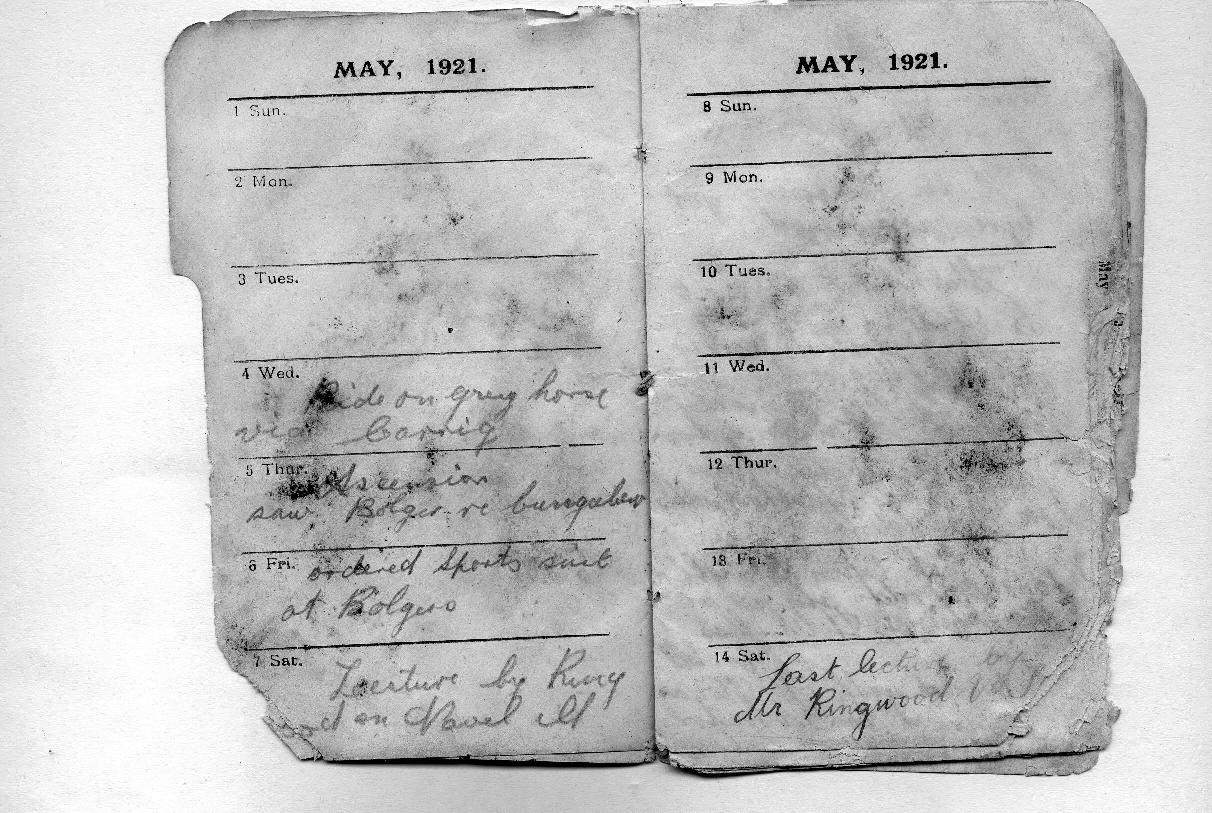 MAY, 1921.
1 Sun.
2 Mon.
3 Tues.
4 Wed.
Ride on grey horse
via Carrig
5 Thur.
Ascension
saw Bolger re bungalow
6 Fri. ordered Sports suit
at Bolgers
7 Sat.
Lecture by Ring
wood on Navel ill
MAY, 1921.
8 Sun.
9 Mon.
10 Tues.
11 Wed.
12 Thur.
13 Fri.
14 Sat.
Last lecture by
Mr Ringwood
May